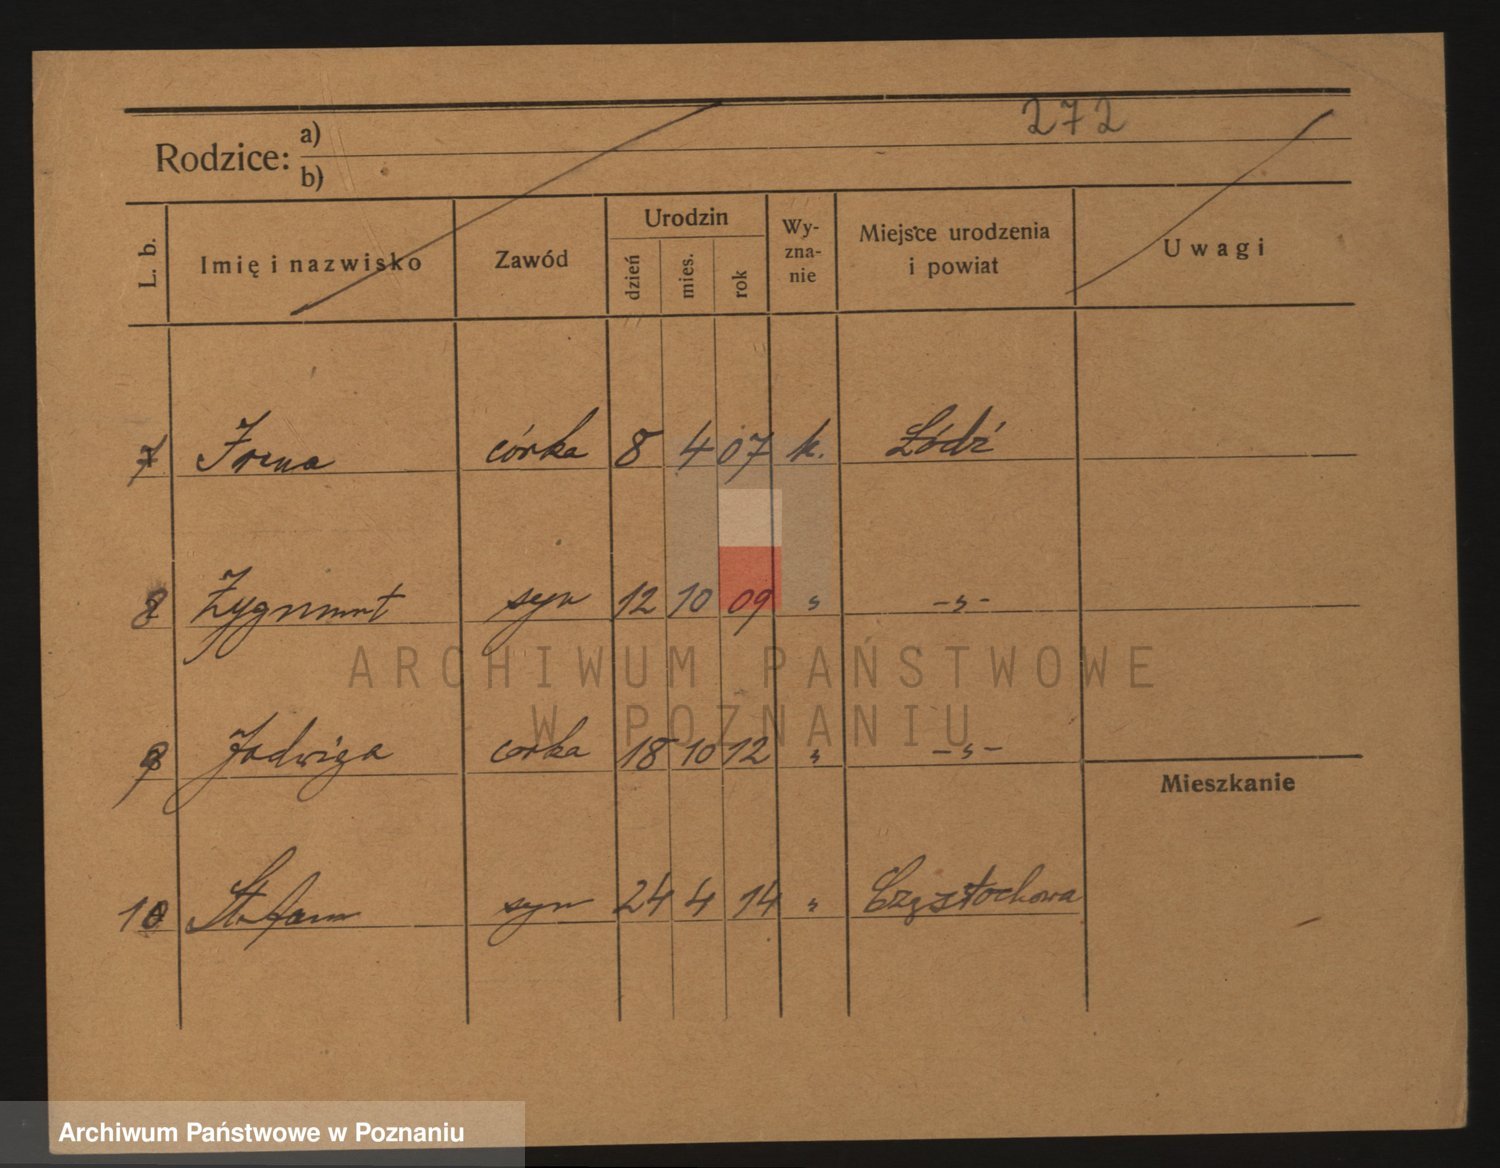 272
Rodzice: a)
b)
L. b. Imię i nazwisko Zawód Urodzin dzień mies. rok Wyznanie Miejsce urodzenia i powiat Uwagi
7 Irena córka 8 4 07 k. Łódź
8 Zygmunt syn 12 10 09 „ -„-
9 Jadwiga corka 18 10 12 „ -„-
Mieszkanie
10 Stefan syn 24 4 14 „ Częstochowa
ARCHIWUM PAŃSTWOWE
W POZNANIU
Archiwum Państwowe w Poznaniu